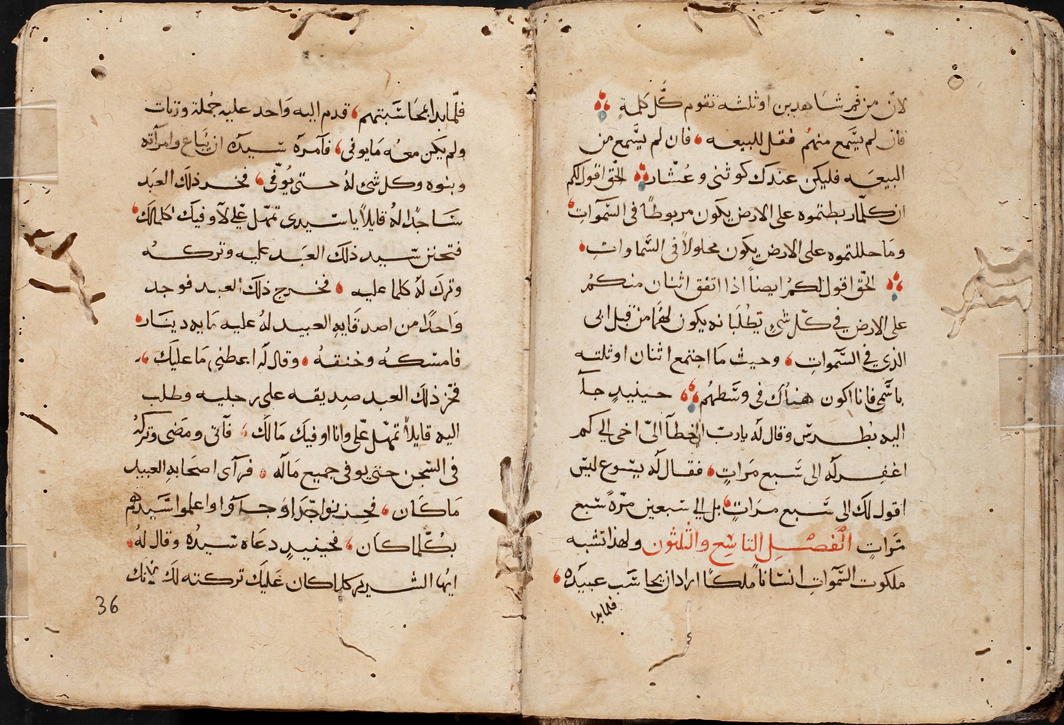 لان من فم شاهدين او ثلثه تقوم كل كلمة
فان لم يسمع منهم فقل للبيعه فان لم يسمع من
البيعه فليكن عندك كوثني وعشار الحق اقول لكم
ان كلما ربطتموه على الارض يكون مربوطا في السموات
وما حللتموه على الارض يكون محلولا في السماوات
الحق اقول لكم ايضا اذا اتفق اثنان منكم
على الارض في كل شي تطلبانه يكون لهما من قبل ابي
الذي في السموات وحيث ما اجتمع اثنان او ثلثه
باسمي فانا اكون هناك في وسطهم حينيذ جا
اليه بطرس وقال له يارب اخطا الى اخي الى كم
اغفر له الى سبع مرات فقال له يسوع ليس
اقول لك الى سبع مرات بل الى سبعين مرة سبع
مرات الفصل التاسع والثلثون ولهذا تشبه
ملكوت السموات انسانا ملكا اراد ان يحاسب عبيده
فلما بدا
فلما بدا بمحاسبتهم قدم اليه واحد عليه جملة وزنات
ولم يكن معه ما يوفي فامر سيده ان يباع وامراته
وبنوه وكل شي له حتى يوفي فخر ذلك العبد
ساجدا له قايلا يا سيدي تمهل علي لاوفيك كلمالك
فتحنن سيد ذلك العبد عليه وتركه
وترك له كلما عليه فخرج ذلك العبد فوجد
واحدا من اصدقايه العبيد له عليه مايه دينار
فامسكه وخنقه وقال له اعطني ما عليك
فخر ذلك العبد صديقه على رجليه وطلب
اليه قايلا تمهل علي وانا اوفيك مالك فابى ومضى وتركه
في السجن حتى يوفي جميع ماله فراى اصحابه العبيد
ما كان فحزنوا جدا وجاوا واعلموا سيدهم
بكلما كان فحينيذ دعاه سيده وقال له
ايها الشرير كلما كان عليك تركته لك لانك
36